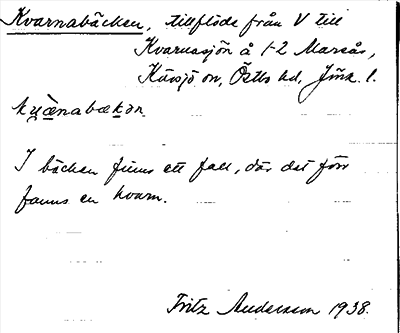 Kvarnabäcken, tillflöde från V till
Kvarnasjön å 1-2 Marsås,
Kävsjö sn, Östbo hd, Jönk. l.
kųænabækən.
I bäcken finns ett fall, där det förr
fanns en kvarn.
Fritz Andersson 1938.